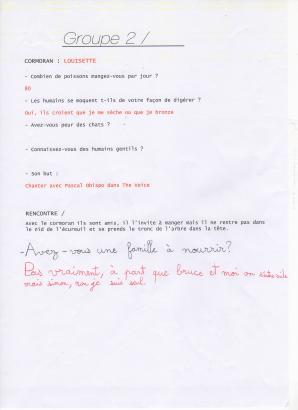 Groupe 2 /
CORMORAN : LOUISETTE
- Combien de poissons mangez-vous par jour ?
80
- Les humains se moquent t-ils de votre façon de digérer ?
Oui, ils croient que je me sèche ou que je bronze
- Avez-vous peur des chats ?
- Connaissez-vous des humains gentils ?
- Son but :
Chanter avec Pascal Obispo dans The Voice
RENCONTRE /
Avec le cormoran ils sont amis, il l'invite à manger mais il ne rentre pas dans
le nid de l'écureuil et se prends le tronc de l'arbre dans la tête.
-Avez-vous une famille à nourrir?
Pas vraiment, à part que bruce et moi on
mais sinon, non je suis seul.